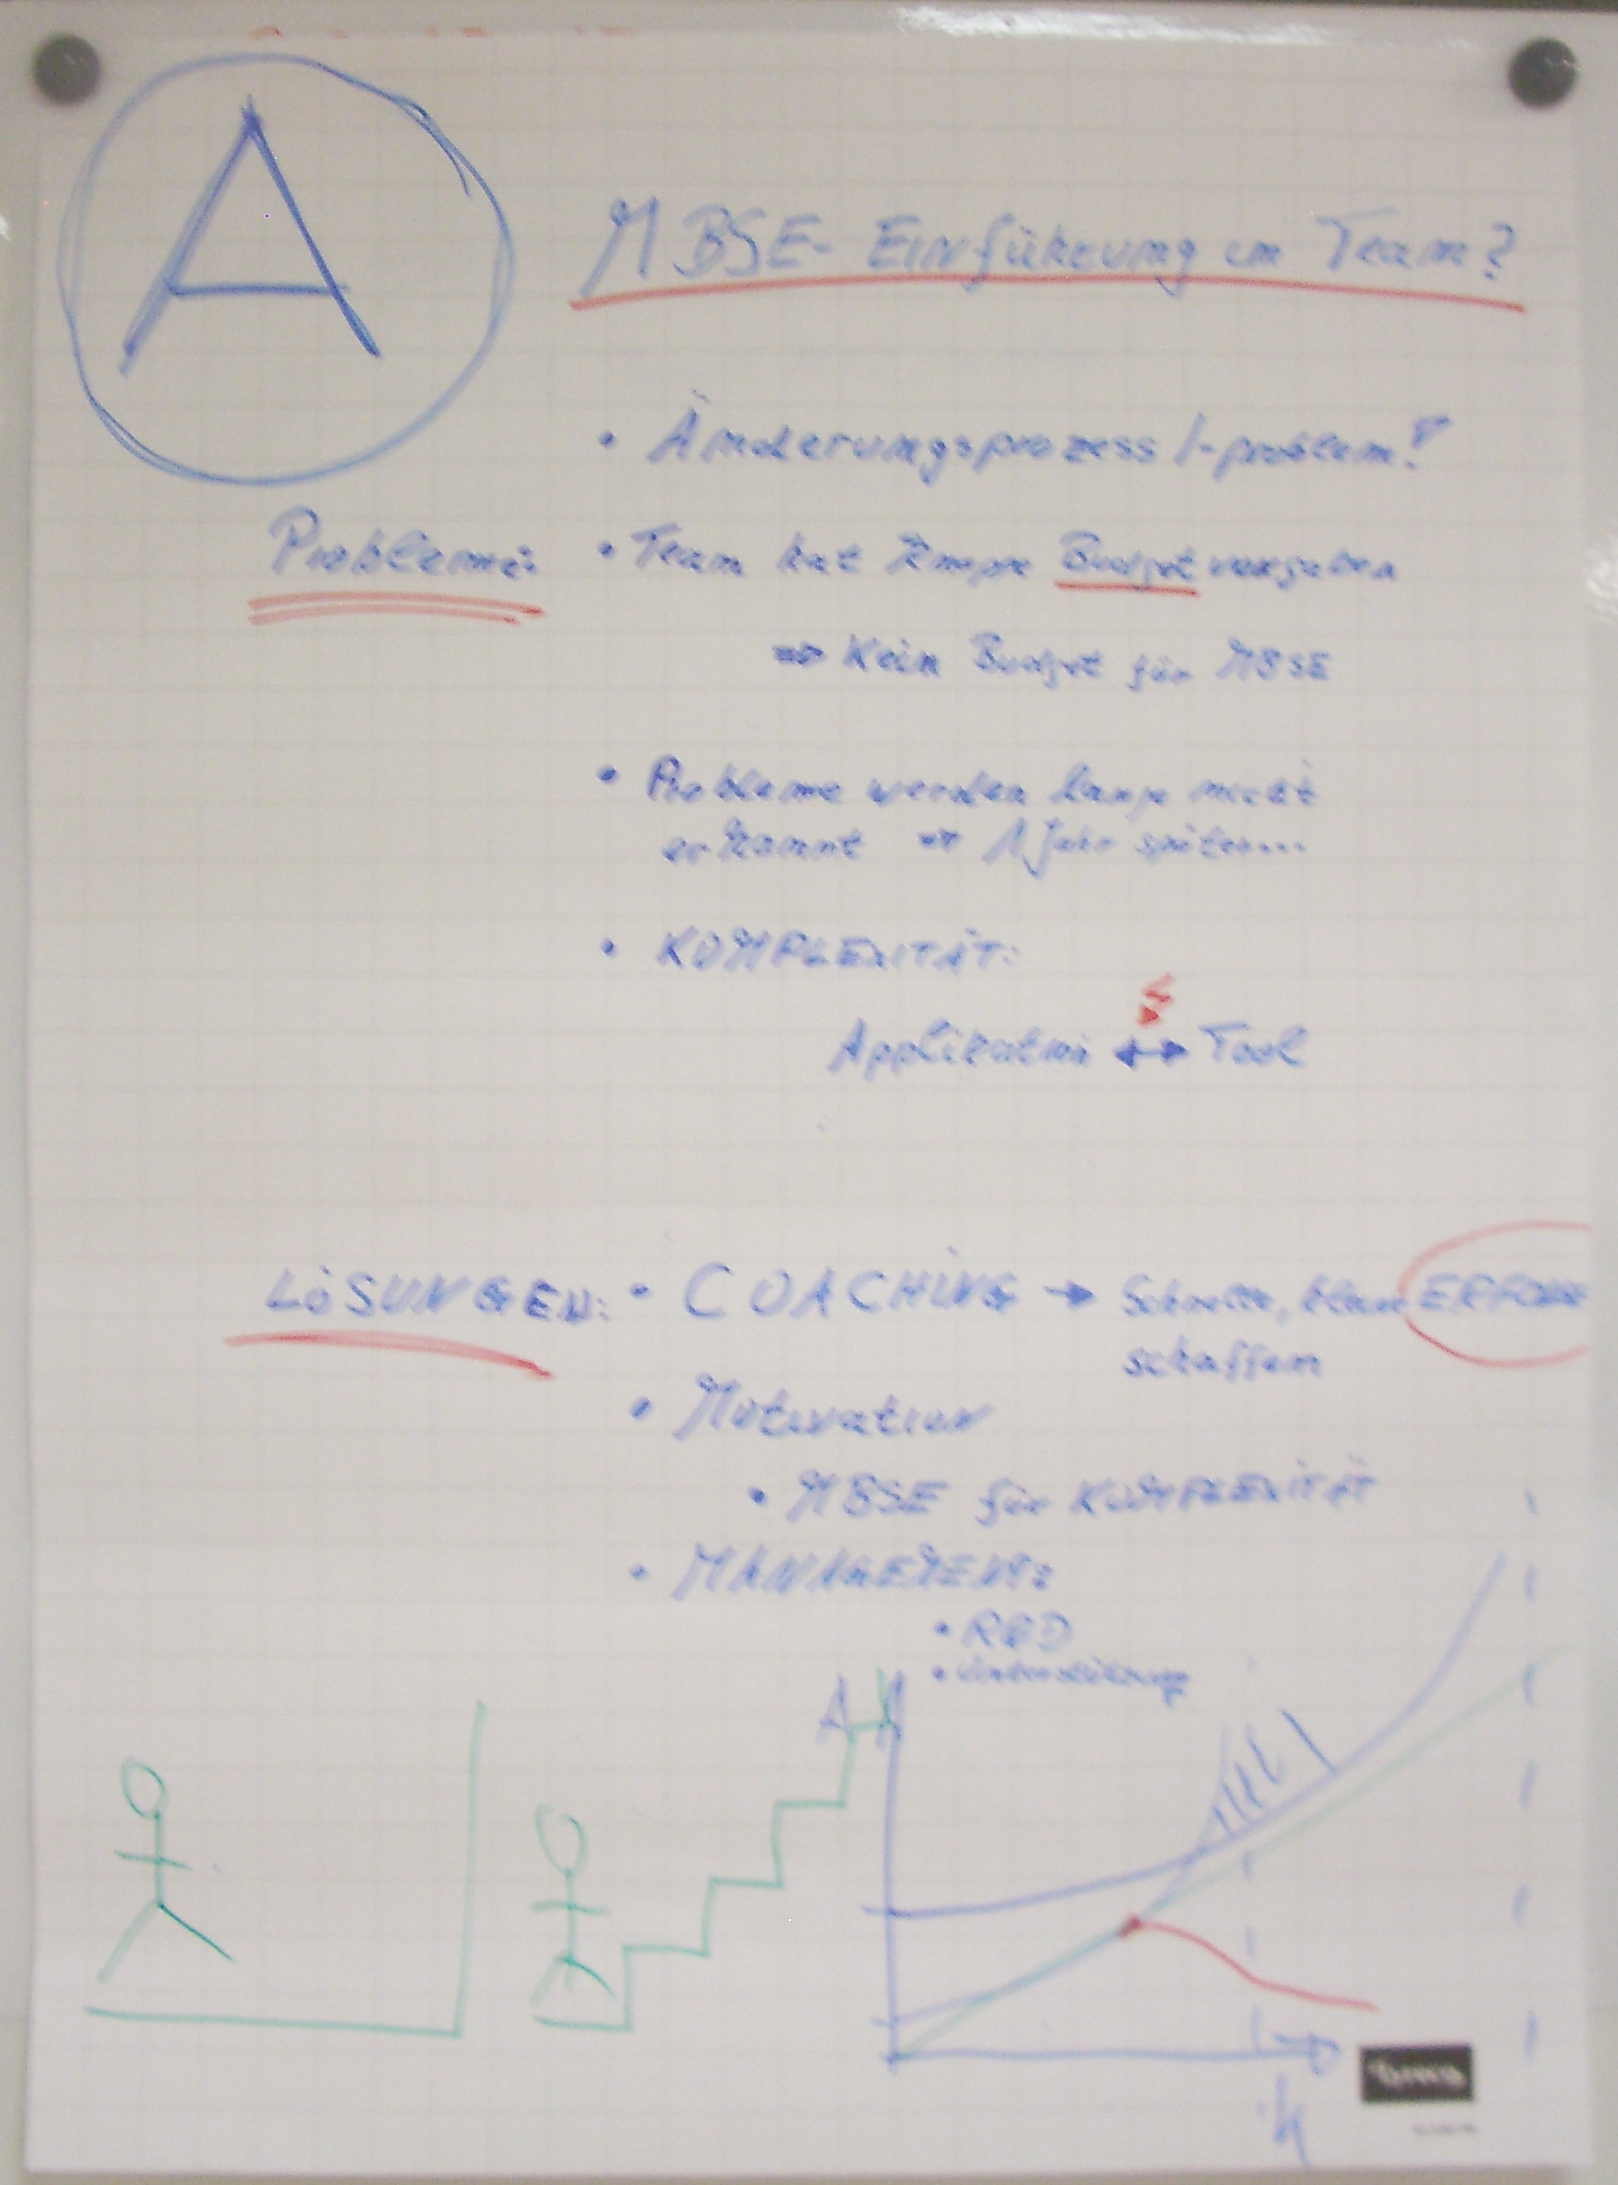 A
MBSE-Einführung im Team?
• Änderungsprozess /-problem?
Probleme: • Team hat knappe Budgetvorgaben
⇒ Kein Budget für MBSE
• Probleme werden lange nicht
erkannt ⇒ 1 Jahr später...
• KOMPLEXITÄT:
Applikation ↔ Tool
LÖSUNGEN: • COACHING → Schnelle, klare ERFOLGE
schaffen
• Motivation
• MBSE für KOMPLEXITÄT
• MANAGEMENT:
• R&D
• Unterstützung
A